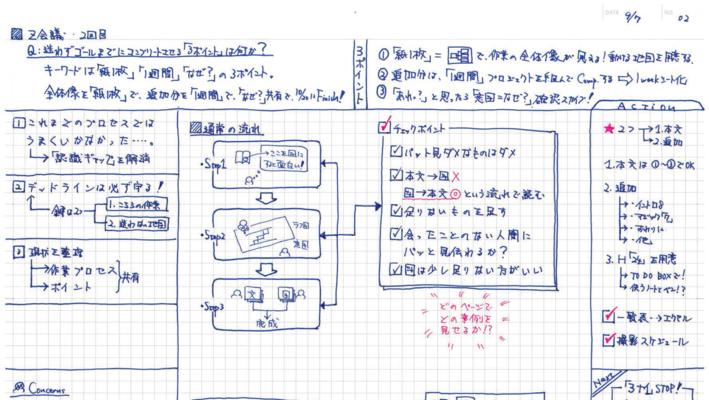 DATE 9/7 NO 02
Z会議・・2回目
Q:迷わずゴールまでにコンプリートさせる「3ポイント」は何か?
キーワードは「紙1枚」「1週間」「なぜ?」の3ポイント。
全体像を「紙1枚」で、追加分を「1週間」で、「なぜ?」共有で、
3ポイント
①「紙1枚」=
で、作業の全体像が見える!動ける地図を用意する。
② 追加分は、「1週間」プロジェクトを手に Comp.する ⇨ 1weekルート化
③「あれ。?」と思ったら
確認
1 これまでのプロセスでは
うまくいかなかった….
→「認識ギャップ」を解消
2 デッドラインは必ず守る!
鍵は2つ
1.こころの作業
2.迷わぬ地図
3 現状を整理
→作業プロセス
→ポイント
共有
通常の流れ
・Step1
ここを図に
面白い!
・Step2
ラフ図
・Step3
文
図
完成
チェックポイント
パット見ダメなものはダメ
本文→図×
図→本文◎という流れで読む
足りないものを足す
会ったことのない人間に
パッと見伝わるか?
図は少し足りない方がいい
どのページで
どの事例を
見せるか!?
Action
★ 2つ→1.本文
→2.追加
1.本文は①〜⑤でOK
2. 追加
・イントロ8
・おわりに
・他
3. H
を用意
→TO DO BOXで!
→使うノートとペン!?
一覧表→エクセル
撮影スケジュール
Concerns
Next
「3ナイ」STOP!